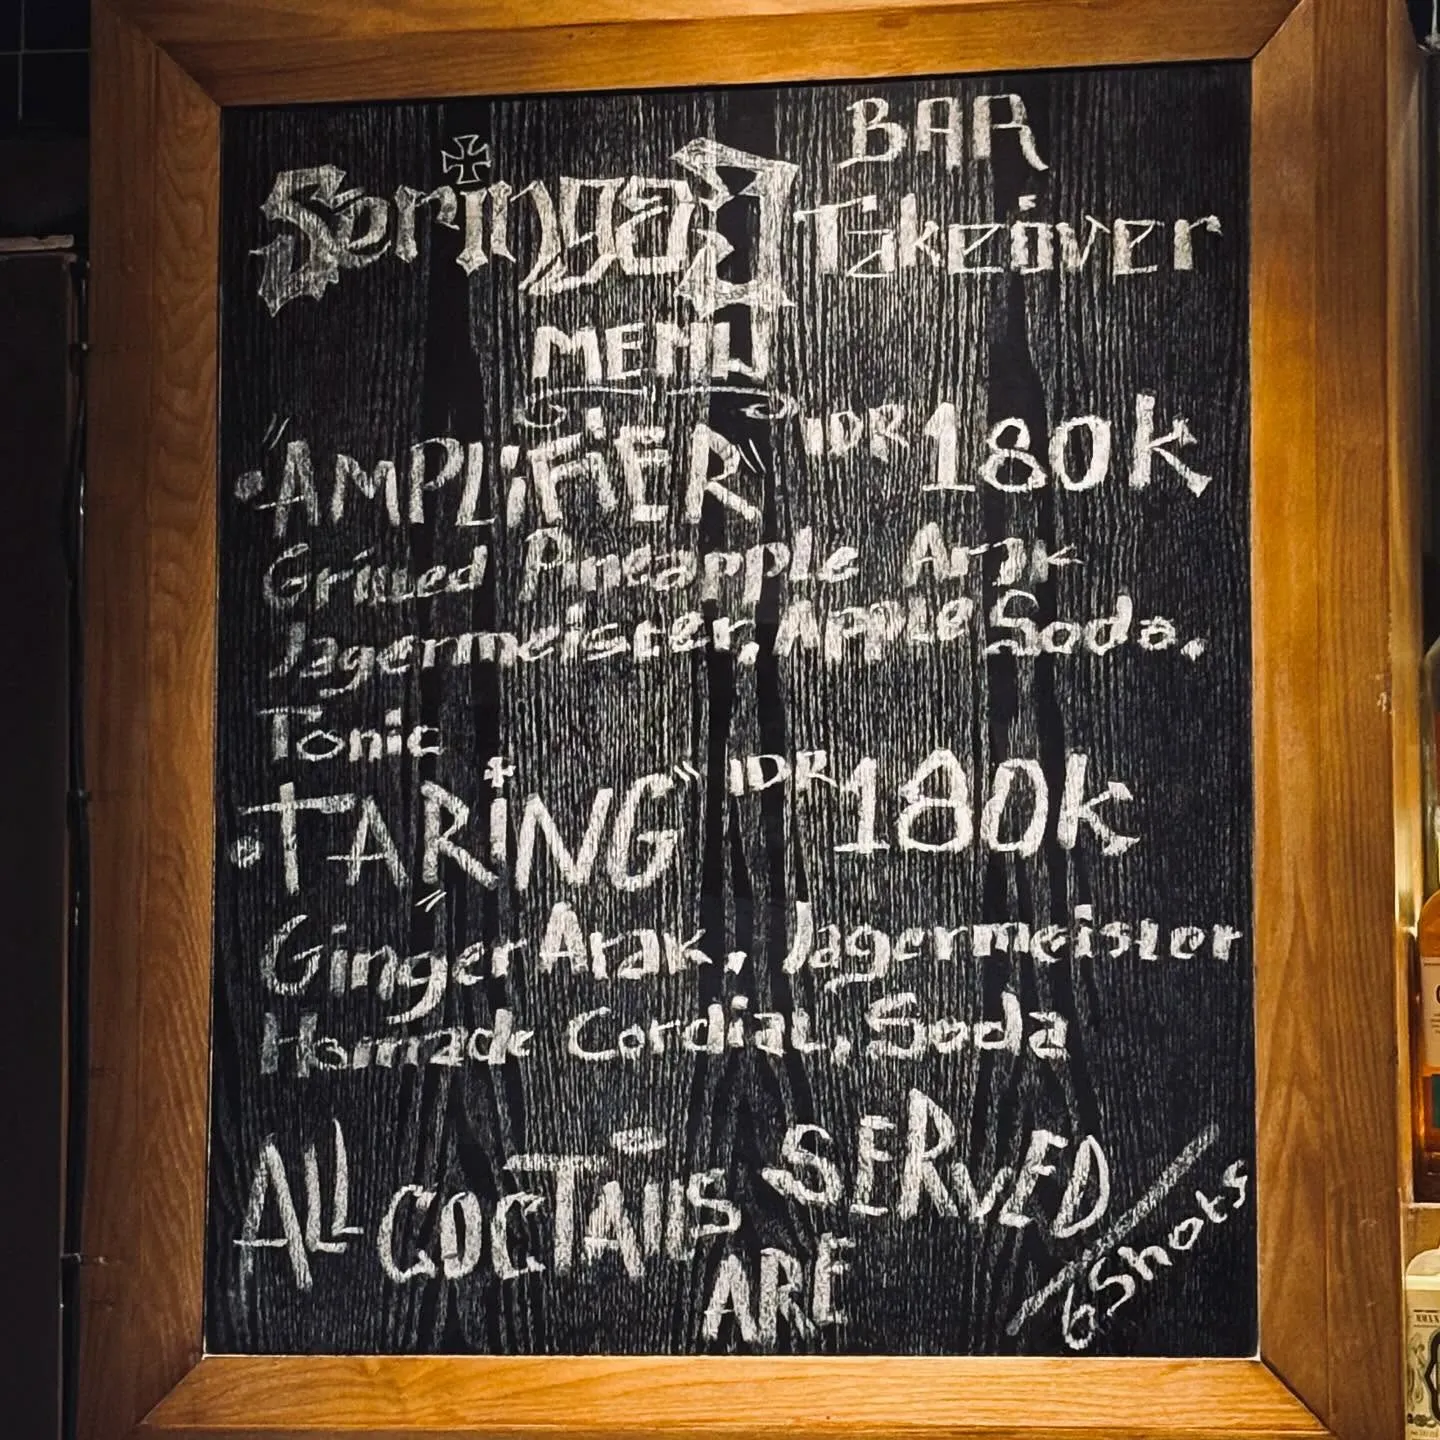 Springa8 BAR
Takeover
MENU
• "AMPLiFiER" IDR 180K
Grilled Pineapple Arak
Jagermeister, Apple Soda,
Tonic
• "TARiNG" IDR 180K
Ginger Arak, Jagermeister
Homade Cordial, Soda
ALL COCTAilS SERVED
ARE
6 Shots